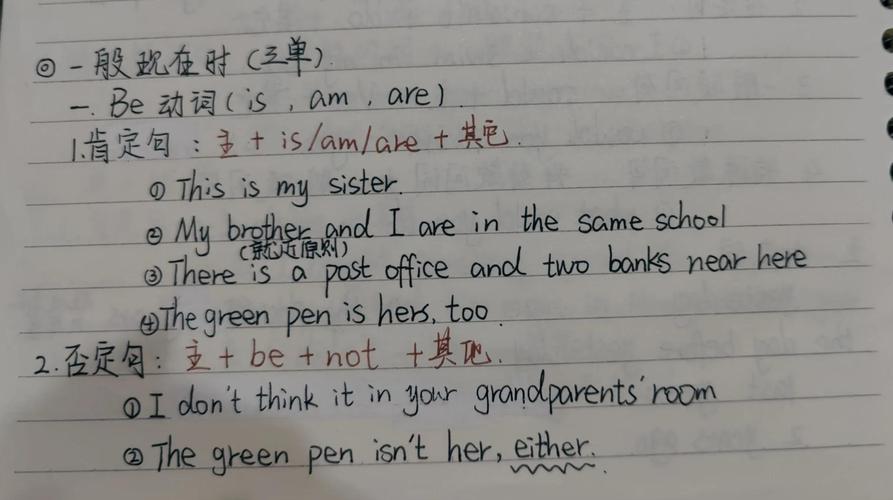 ◎一般现在时(三单).
一. Be 动词(is, am, are).
1.肯定句:主+is/am/are+其它.
①This is my sister.
②My brother and I are in the same school
(就近原则)
③There is a post office and two banks near here
④The green pen is hers, too.
2.否定句:主+be+not +其他.
①I don't think it in your grandparents' room
②The green pen isn't her, either.